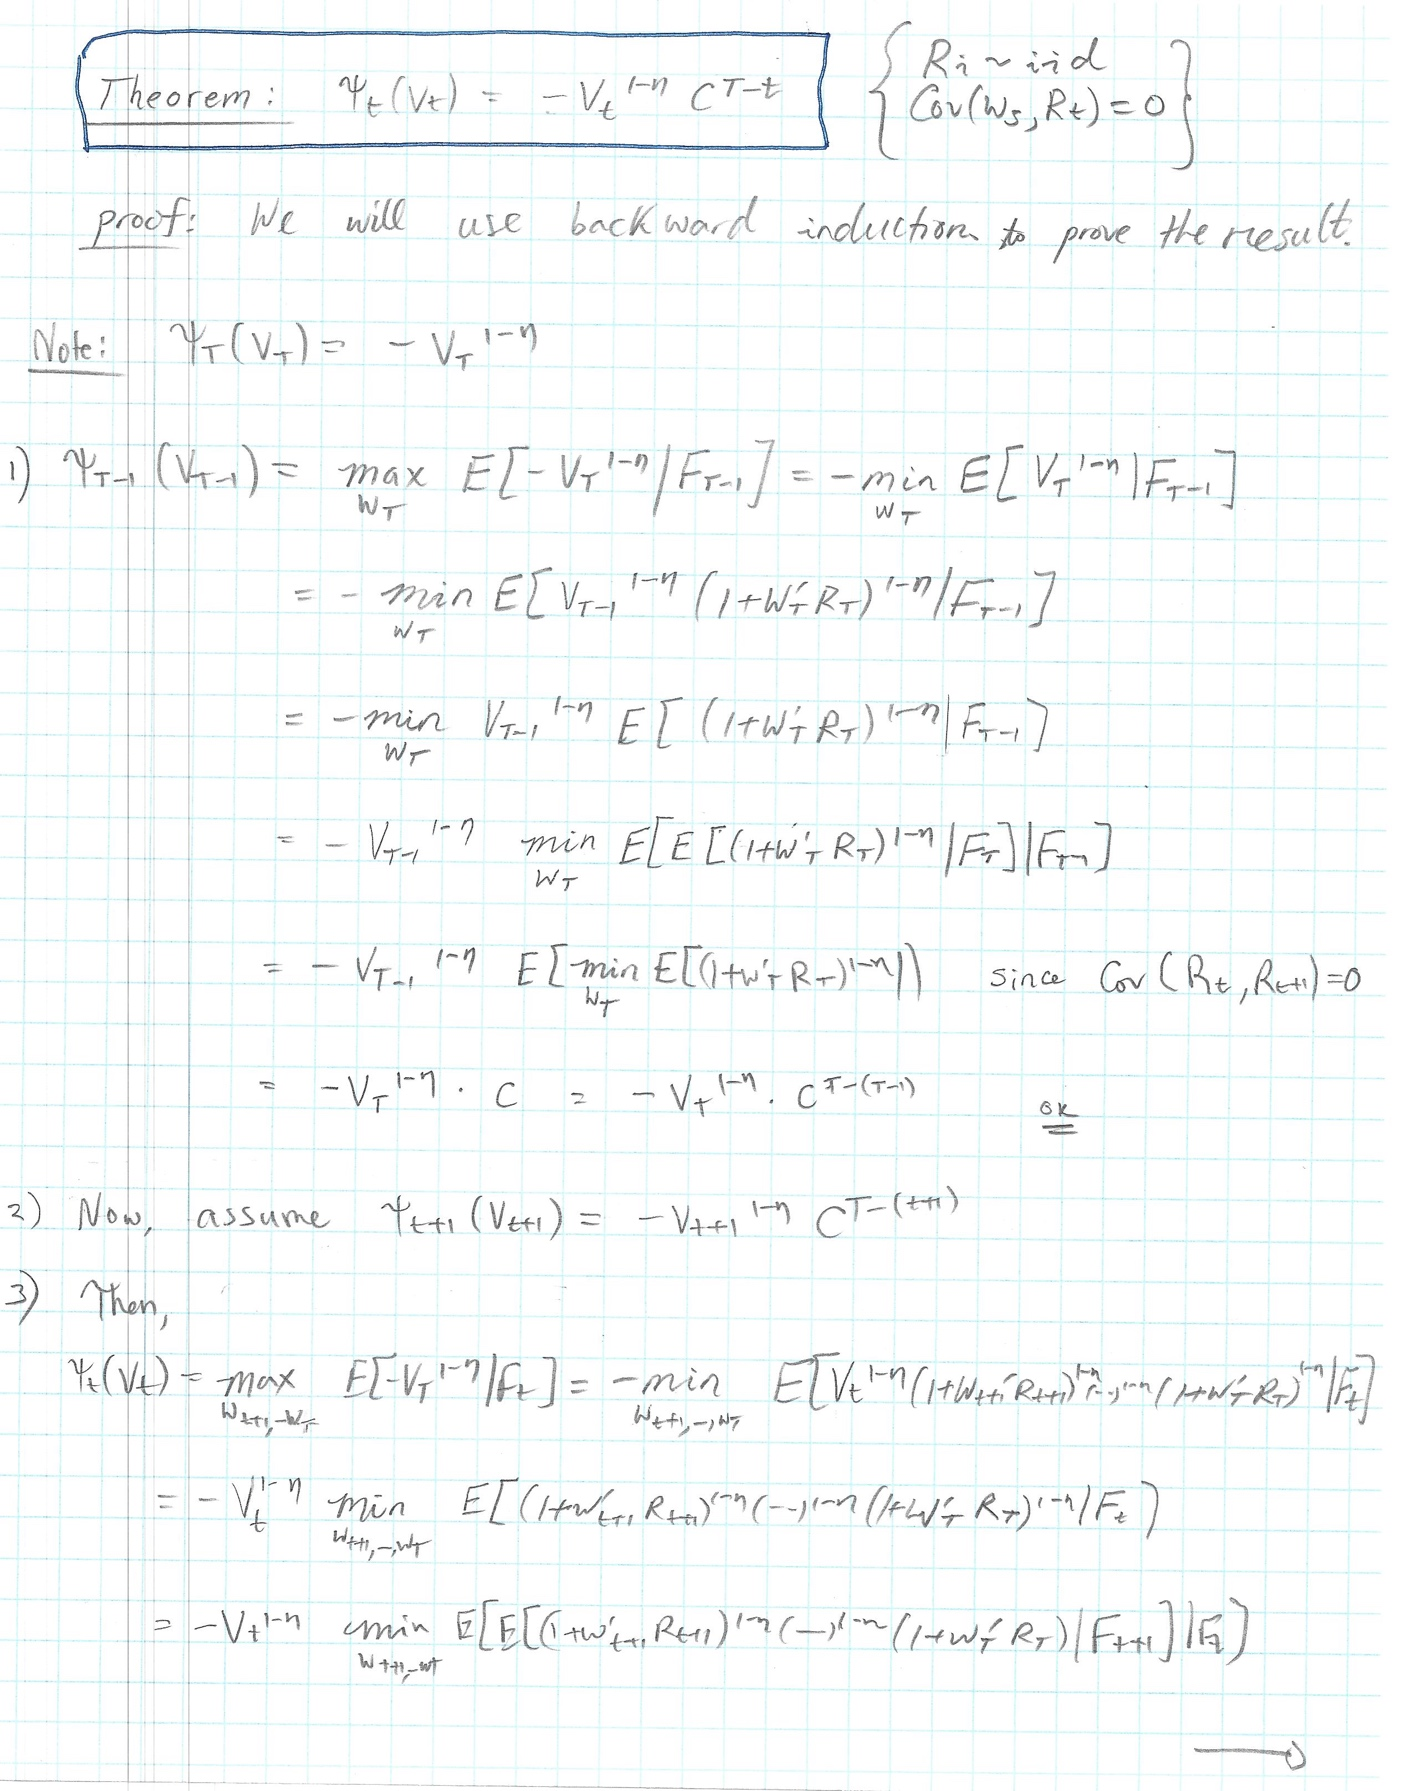 Theorem: Ψ_t(V_t) = -V_t^{1-η} C^{T-t} { R_i ~ iid
Cov(W_s, R_t) = 0 }
proof: We will use backward induction to prove the result.
Note: Ψ_T(V_T) = - V_T^{1-η}
1) Ψ_{T-1}(V_{T-1}) = max_{W_T} E[-V_T^{1-η}|F_{T-1}] = -min_{W_T} E[V_T^{1-η}|F_{T-1}]
= - min_{W_T} E[V_{T-1}^{1-η} (1+W_T'R_T)^{1-η}|F_{T-1}]
= -min_{W_T} V_{T-1}^{1-η} E[(1+W_T'R_T)^{1-η}|F_{T-1}]
= - V_{T-1}^{1-η} min_{W_T} E[E[(1+W_T'R_T)^{1-η}|F_T]|F_{T-1}]
= - V_{T-1}^{1-η} E[min_{W_T} E[(1+W_T'R_T)^{1-η}]] since Cov(R_t, R_{t+1})=0
= -V_T^{1-η} · C = -V_t^{1-η} · C^{T-(T-1)} OK
2) Now, assume Ψ_{t+1}(V_{t+1}) = -V_{t+1}^{1-η} C^{T-(t+1)}
3) Then,
Ψ_t(V_t) = max_{W_{t+1},-W_T} E[-V_T^{1-η}|F_t] = -min_{W_{t+1},-,W_T} E[V_t^{1-η}(1+W_{t+1}'R_{t+1})^{1-η}(--)^{1-η}(1+W_T'R_T)^{1-η}|F_t]
= - V_t^{1-η} min_{W_{t+1},-,W_T} E[(1+W_{t+1}'R_{t+1})^{1-η}(--)^{1-η}(1+W_T'R_T)^{1-η}|F_t]
= -V_t^{1-η} min_{W_{t+1},-W_T} E[E[(1+W_{t+1}'R_{t+1})^{1-η}(--)^{1-η}(1+W_T'R_T)|F_{t+1}]|F_t]
→